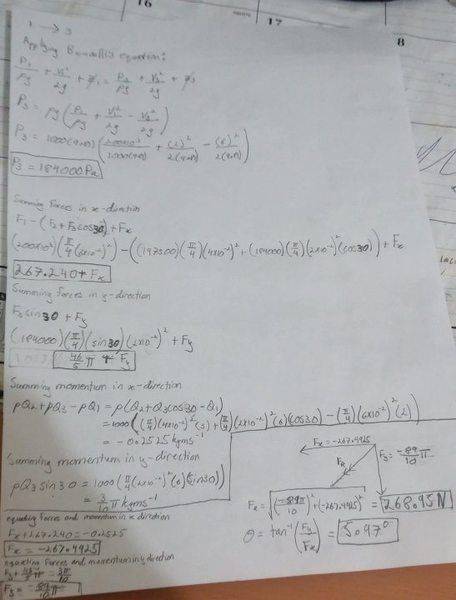 16
17
8
1 → 3
Applying Bernoulli's equation:
P₁/ρg + V₁²/2g + z₁ = P₃/ρg + V₃²/2g + z₃
P₃ = ρg(P₁/ρg + V₁²/2g - V₃²/2g)
P₃ = 1000(9.81)(200×10³/1000(9.81) + (2)²/2(9.81) - (6)²/2(9.81))
P₃ = 184000Pa
Summing Forces in x-direction
F₁ - (F₂ + F₃cos30) + Fx
(200×10³)(π/4)(6×10⁻²)² - ((197500)(π/4)(4×10⁻²)² + (184000)(π/4)(2×10⁻²)²(cos30)) + Fx
267.240 + Fx
Summing Forces in y-direction
F₃sin30 + Fy
(184000)(π/4)(sin30)(2×10⁻²)² + Fy
46/5 π + Fy
Summing momentum in x-direction
ρQ₂ + ρQ₃ - ρQ₁ = ρ(Q₂ + Q₃cos30 - Q₁)
= 1000((π/4)(4×10⁻²)²(3) + (π/4)(2×10⁻²)²(6)(cos30) - (π/4)(6×10⁻²)²(2))
= -0.2525 kgms⁻¹
Summing momentum in y-direction
ρQ₃sin30 = 1000(π/4(2×10⁻²)²(6)(sin30))
= 3/10 π kgms⁻¹
equating Forces and momentum in x direction
Fx + 267.240 = -0.2525
Fx = -267.4925
equating Forces and momentum in y direction
Fy + 46/5 π = 3π/10
Fy = -89/10 π
Fx = -267.4925
FR
Fy = -89/10 π
FR = √((-89π/10)² + (-267.4925)²) = 268.95N
θ = tan⁻¹(Fy/Fx) = 5.97°